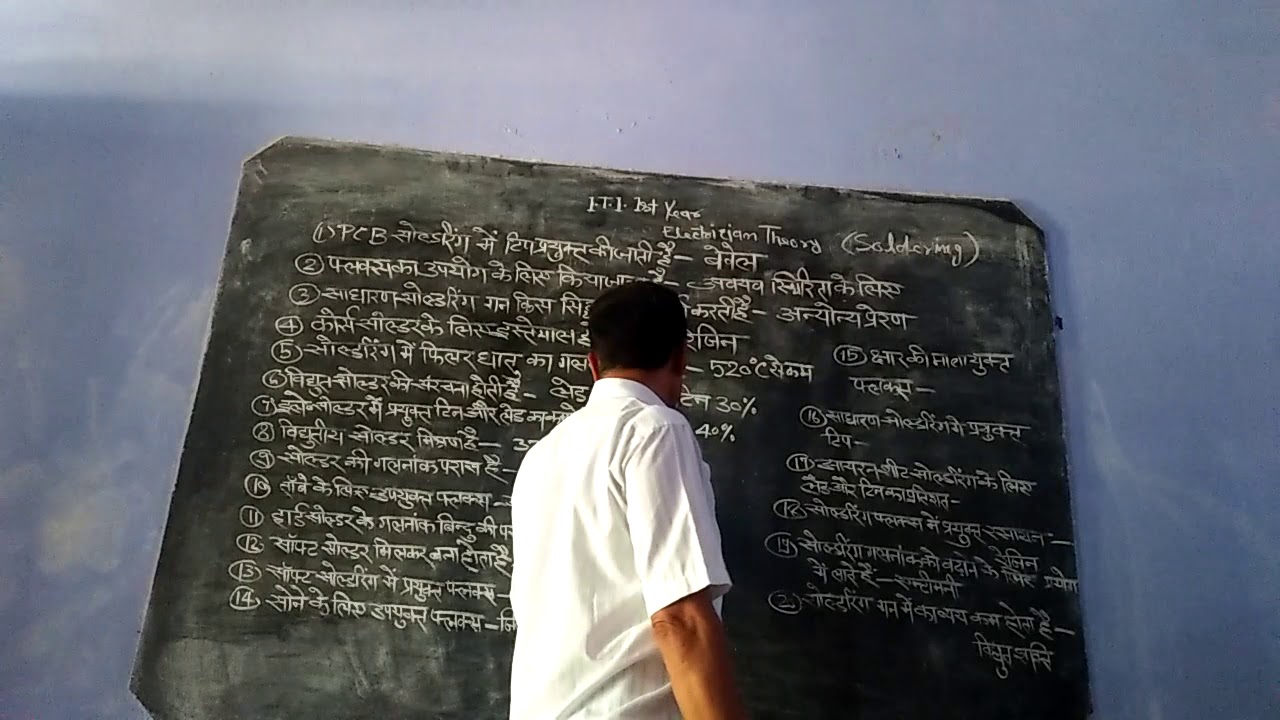 I.T.I. 1st Year
Electrician Theory (Soldering)
① PCB सोल्डरिंग में टिप प्रयुक्त की जाती है – बेवेल
② फ्लक्स का उपयोग के लिए किया जाता है – अवयव स्थिरिता के लिए
③ साधारण सोल्डरिंग गन किस करती है – अन्योन्य प्रेरण
④ कोर्स सोल्डर के लिए इस्तेमाल रेजिन
⑤ सोल्डरिंग में फिलर धातु का – 520°C से कम
⑥ विद्युत सोल्डर की संरचना होती है – लेड टिन 30%
⑦ सोल्डर में प्रयुक्त टिन और लेड का 40%
⑧ विद्युतीय सोल्डर मिश्रण है –
⑨ सोल्डर की गलनांक परास है –
⑩ ताँबे के लिए उपयुक्त फ्लक्स –
⑪ हार्ड सोल्डर के गलनांक बिन्दु की
⑫ सॉफ्ट सोल्डर मिलकर बना होता है
⑬ सॉफ्ट सोल्डरिंग में प्रयुक्त फ्लक्स –
⑭ सोने के लिए उपयुक्त फ्लक्स –
⑮ क्षार की मात्रा युक्त
फ्लक्स –
⑯ साधारण सोल्डरिंग में प्रयुक्त
टिप –
⑰ आयरन शीट सोल्डरिंग के लिए
लैड और टिन का प्रतिशत –
⑱ सोल्डरिंग फ्लक्स में प्रयुक्त रसायन –
⑲ सोल्डरिंग गलनांक को बढ़ाने के लिए प्रयोग
में लाते हैं – एन्टीमनी
रेजिन
सोल्डरिंग गन में का व्यय कम होता है –
विद्युत शक्ति